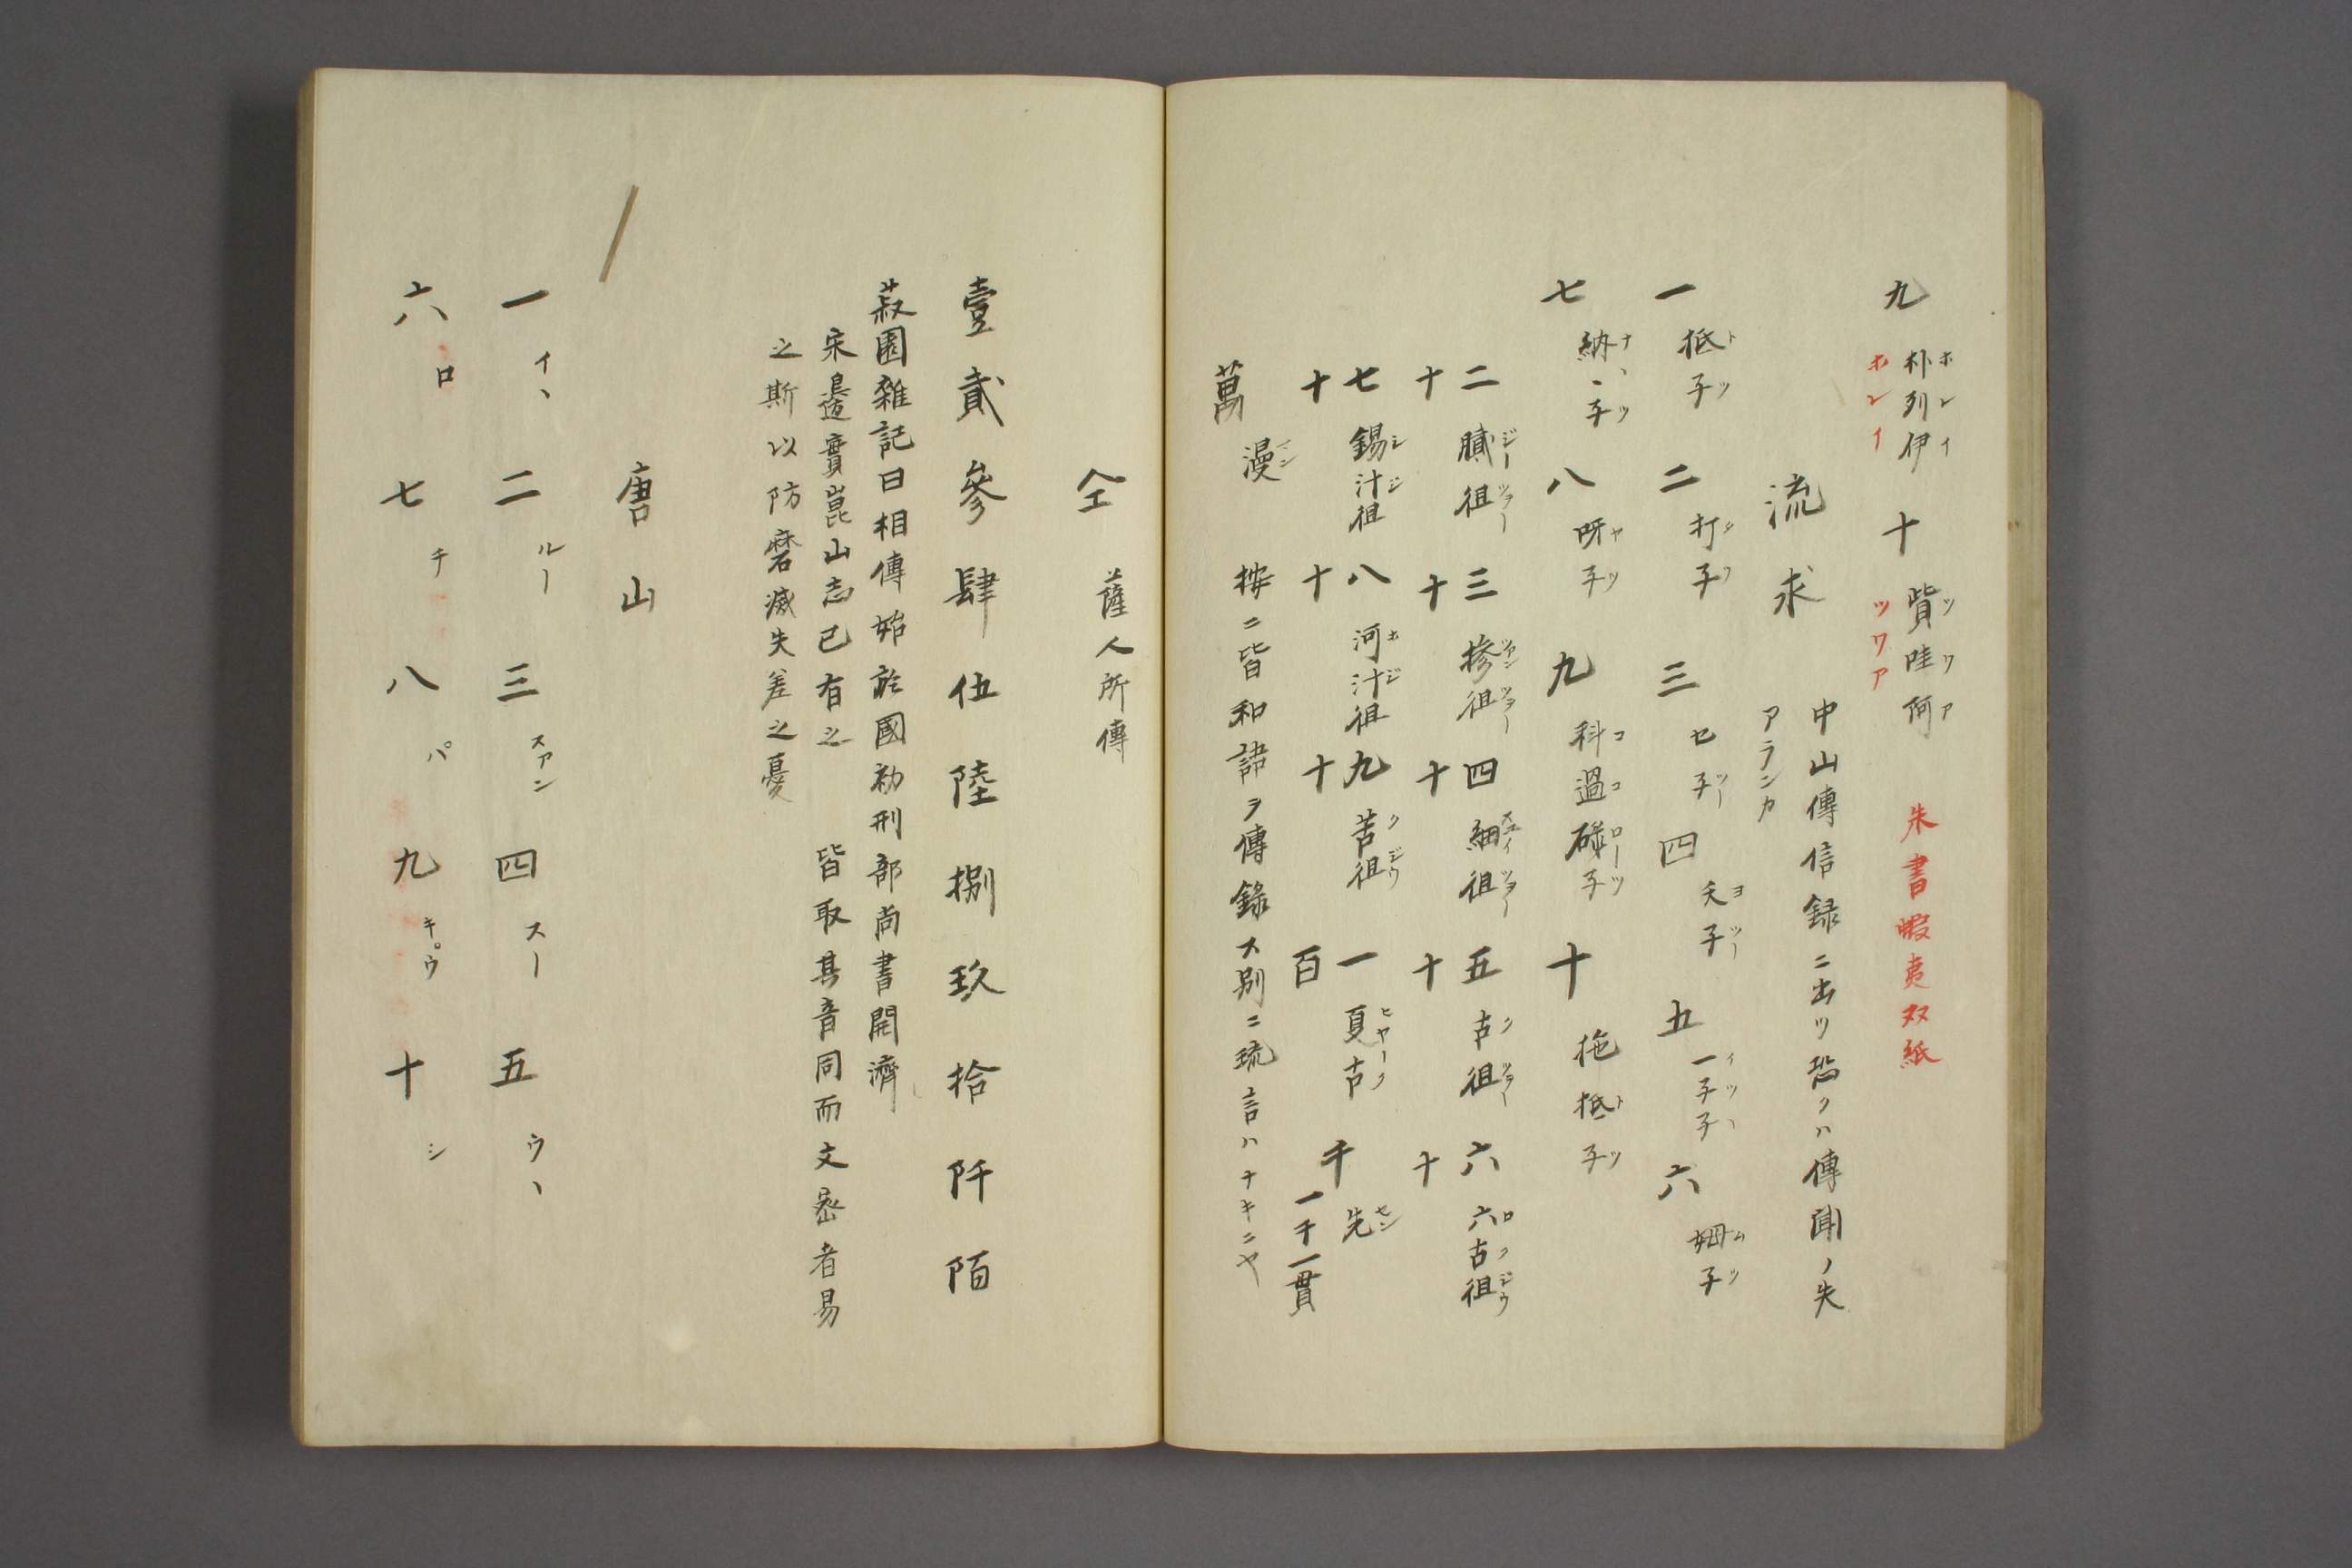 九 朴列伊 ホレイ ホレイ 十 貲哇阿 ツワア ツワア 朱書蝦夷双紙
流求 中山傳信録ニ出ツ恐クハ傳聞ノ失
アランカ
一 抵子 トツ 二 打子 三 セ子 ツー 四 夭子 ヨツー 五 一子子 イツヽ 六 姆子 ムツ
七 納〻子 ナヽツ 八 呀子 ヤツ 九 科過碌子 ココローツ 十 拖抵子 トツ
二十 膩徂 ジーツアー 三十 摻徂 ツアンツアー 四十 細徂 ツアー 五十 古徂 クツアー 六十 六古徂 ロクジウ
七十 錫汁徂 シジ 八十 河汁徂 ホジ 九十 苦徂 クジウ 一百 夏古 ヒヤーク 千 先 セン 一千一貫
萬 漫 按ニ皆和語ヲ傳錄ス別ニ琉言ハナキニヤ
仝 薩人所傳
壹貳參肆伍陸捌玖拾阡陌
菽園雜記曰相傳始於國初刑部尚書開濟
宋邊實崑山志已有之 皆取其音同而文 者易
之斯以防磨滅失差之憂
唐山
一 イヽ 二 ルー 三 スアン 四 スー 五 ウヽ
六 ロ 七 チ 八 パ 九 キ゚ウ 十 シ